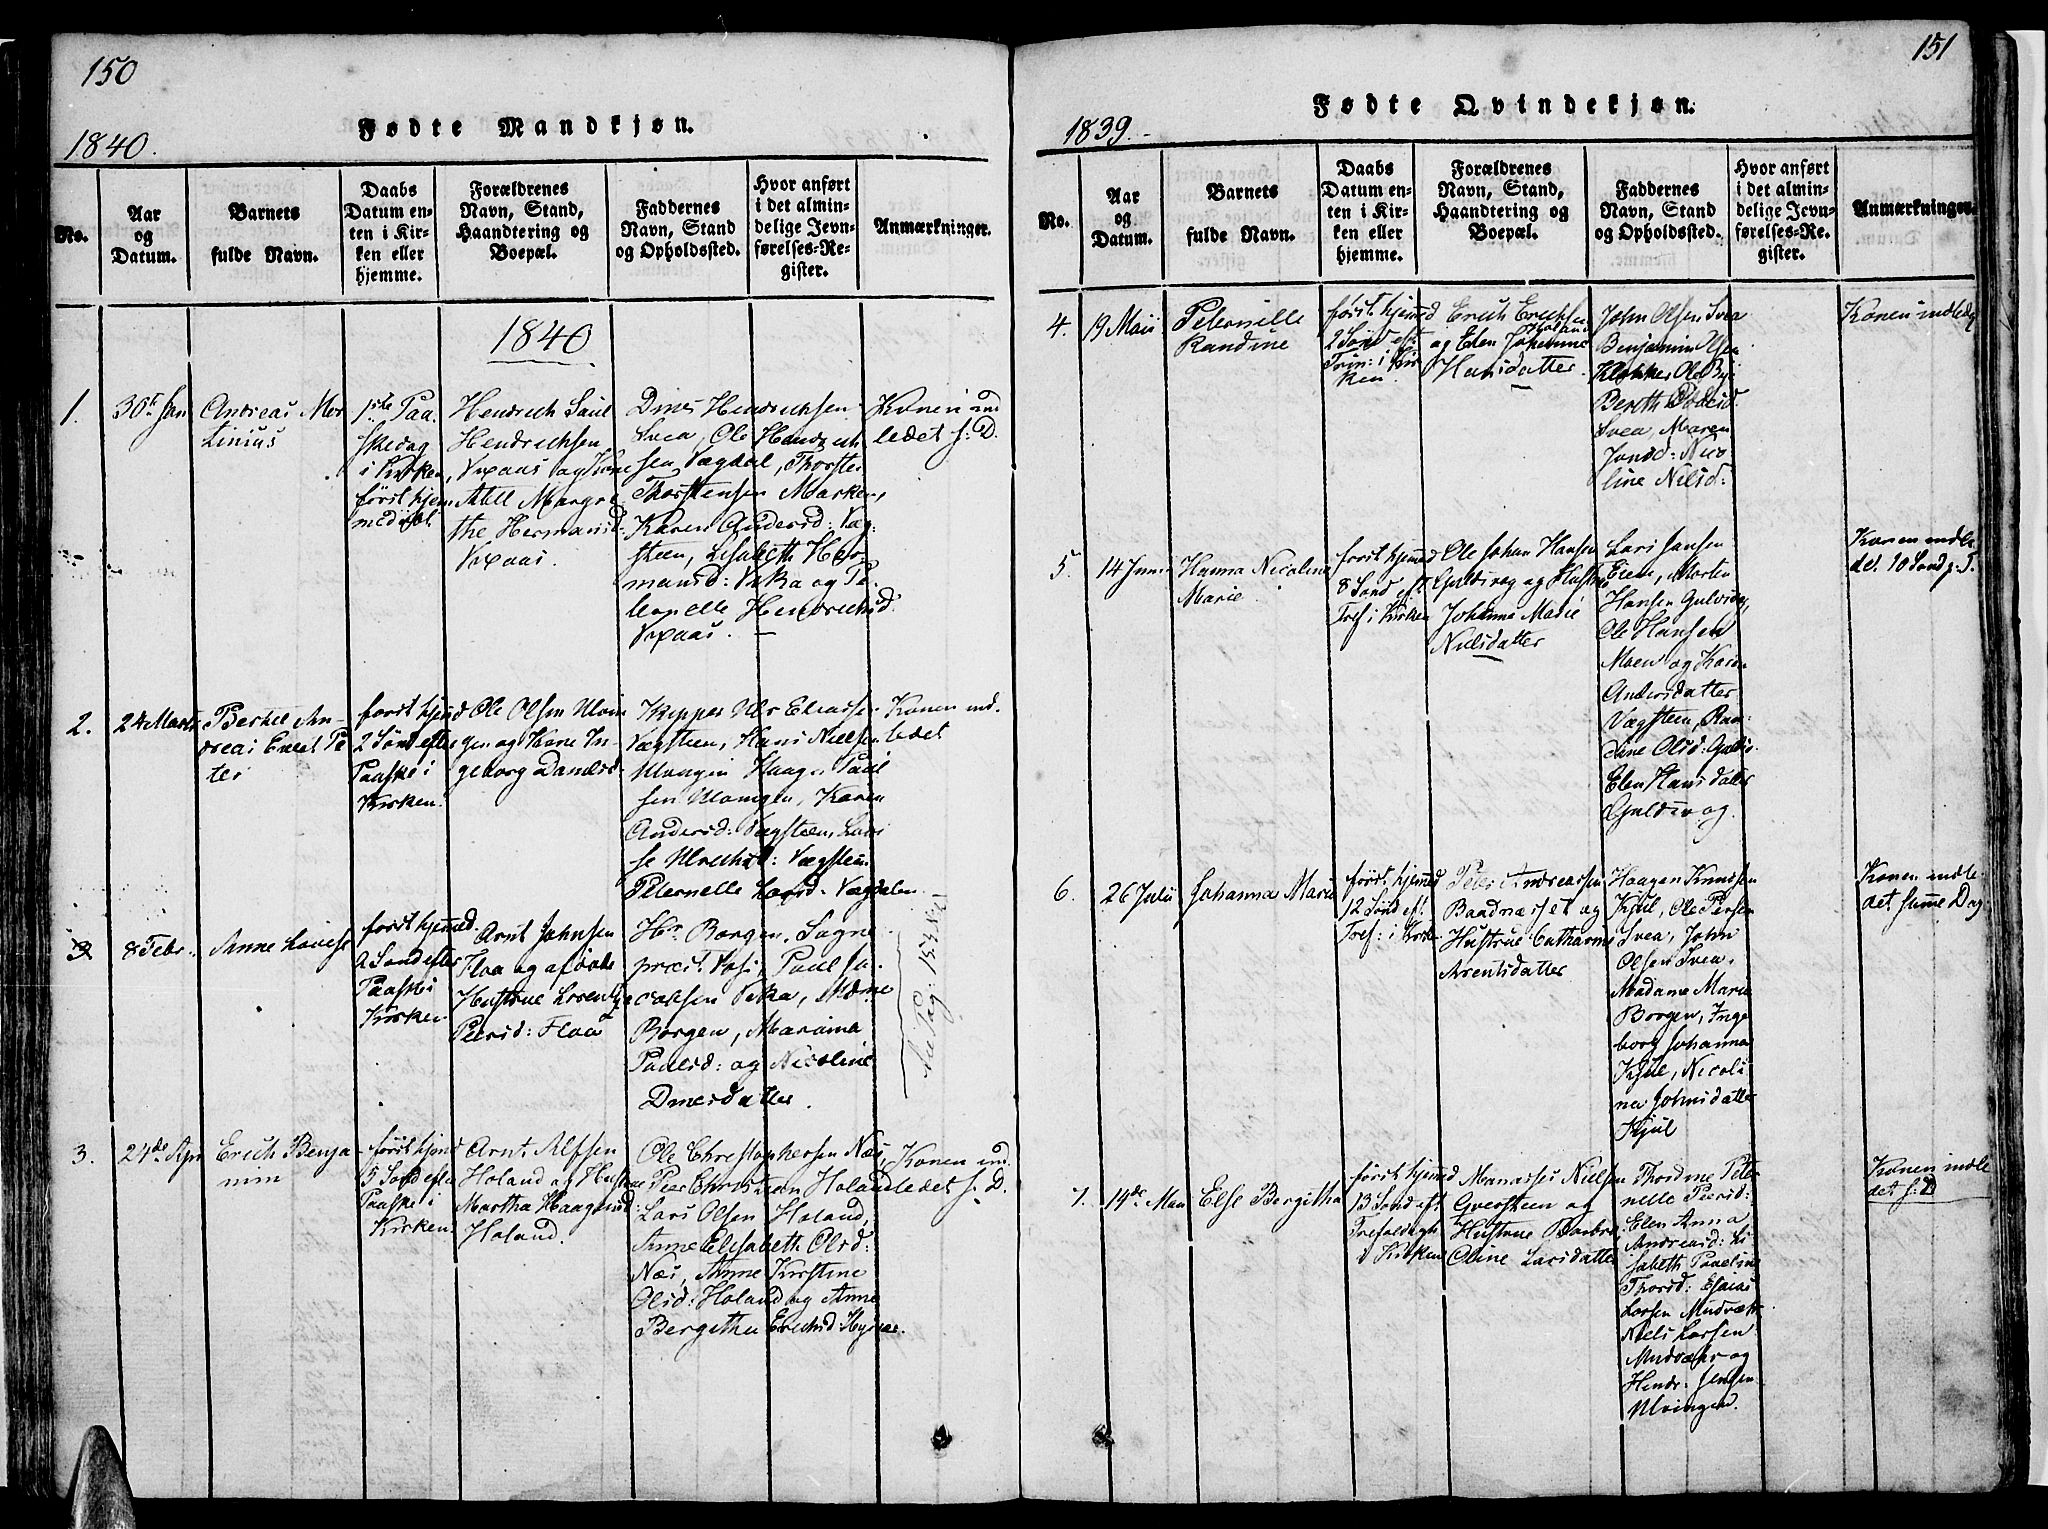 150
Fødte Mandkjøn.
1840.
No.
Aar
og
Datum.
Barnets
fulde Navn.
Daabs
Datum en-
ten i Kir-
ken eller
hjemme.
Forældrenes
Navn, Stand,
Haandtering og
Boepæl.
Faddernes
Navn, Stand
og Opholdssted.
Hvor anført
i det almin-
delige Jevn-
førelses-Re-
gister.
Anmærkninger.
1840
1.
30te Jan
Andreas Mor
tinius
1ste Paa
skedag
i Kirken,
først hjem
medøbt
Hendrich Paul
Hendrichsen
og Kone
Abel Margre
the Hermansd:
Dines Hendrichsen
Svea, Ole Hendrich
sen Vægdal, Thorsten
Thorstensen Marken,
Karen Andersd: Væg-
steen, Lisabeth Her
mansd: og Pe
Hendrichsd:
Konen ind
ledet s: D.
2.
24 Marts
Berhel An-
dreas Enert Pe
ter
først hjemd
2 Sönd efter
Paaske i
Kirken.
Ole Olsen Ulvin
gen og Kone In-
geborg Danielsd
Eliassen
Vægsteen, Hans Nielsen
Ulvingen Haagen Paul
sen Ulvingen, Karen
Andersd: Vægsteen,
Ulrichsd: Vægsteen
Peternelle Larsd. Vægdalen.
Konen ind-
ledet
3
8 Febr.
Anne Lovise
først hjemd.
2 Sönd efter
Paaske i
Kirken
Arnt Johnsen
Floa og afdöde
Hustrue Lorentze
Peersd: Floa
Hr Borgen, Sogne
præst Paul Ja
cobsen Mdme
Borgen, Mariama
Paulsd: og Nicoline
Dinesdatter.
3.
24de Apr
Erich Benja-
min
først hjemd
5 Sönd efter
Paaske i
Kirken
Arnt Alfsen
Holand og Hustrue
Martha Haagensd:
Holand.
Ole Christophersen Næs,
Peer Christian Holand
Lars Olsen Holand,
Anne Elisabeth Olsd:
Næs, Anne Kirstine
Olsd: Holand og Anne
Bergitha Erichsd:
Konen ind-
ledet s: D.
151
Fødte Qvindekjøn.
1839.
No.
Aar
og
Datum.
Barnets
fulde Navn.
Daabs
Datum en-
ten i Kir-
ken eller
hjemme.
Forældrenes
Navn, Stand,
Haandtering og
Boepæl.
Faddernes
Navn, Stand
og Opholdssted.
Hvor anført
i det almin-
delige Jevn-
førelses-Re-
gister.
Anmærkninger.
4.
19 Maii
Peternille
Randine
først hjemd
2 Sönd eft
Trin: i Kir
ken
Erich Erichsen
Holand
og Elen Johanne
Hansdatter
John Olsen Svea
Benjamin Olsen
Klokker Ole
Bereth
Svea, Maren
Jonsd: Nico
line Nilsd:
Konen indledt
5.
14 Juni
Hanna Nicolina
Marie
först hjemd
8 Sönd eft
Tref i Kirken
Ole Johan Hansen
Guldsvog og Hustrue
Johanne Marie
Nielsdatter
Lars Jansen
Morten
Hansen Gulsvog,
Ole Hansen
Moen og Karen
Andersdatter
Vægsteen, Ran-
dine Olsd:
Elen Hansdatter
Guldsvog
Konen indle
det 10 Sönd
6.
26 Julii
Johanna Marie
först hjemd
12 Sönd eft.
Tref: i Kirke
Peter Andreassen
Baadnæsset og
Hustrue Catharina
Arentsdatter
Haagen Knudsen
Kjul, Ole Persen
Svea, John
Olsen Svea,
Madame Marie
Borgen, Inge
borg Johanna
Kjul, Nicoli
na Johnsdatter
Kjul
Konen indle
det samme Dag
7.
14de Maii
Else Bergitha
først hjemd
13 Sönd eft
Trefoldigh
i Kirken
Manasses Nielsen
Qversteen og
Hustrue Barbra
Oline Larsdatter
Thordine Peter
nelle Peersd:
Elen Anna
Andreasd: Li
sabeth Pauline
Thorsd: Esaias
Larsen Mudvæhr
Niels Larsen
Mudvæhr og
Hendr: Jensen
Ulvingen.
Konen indle
det s: D